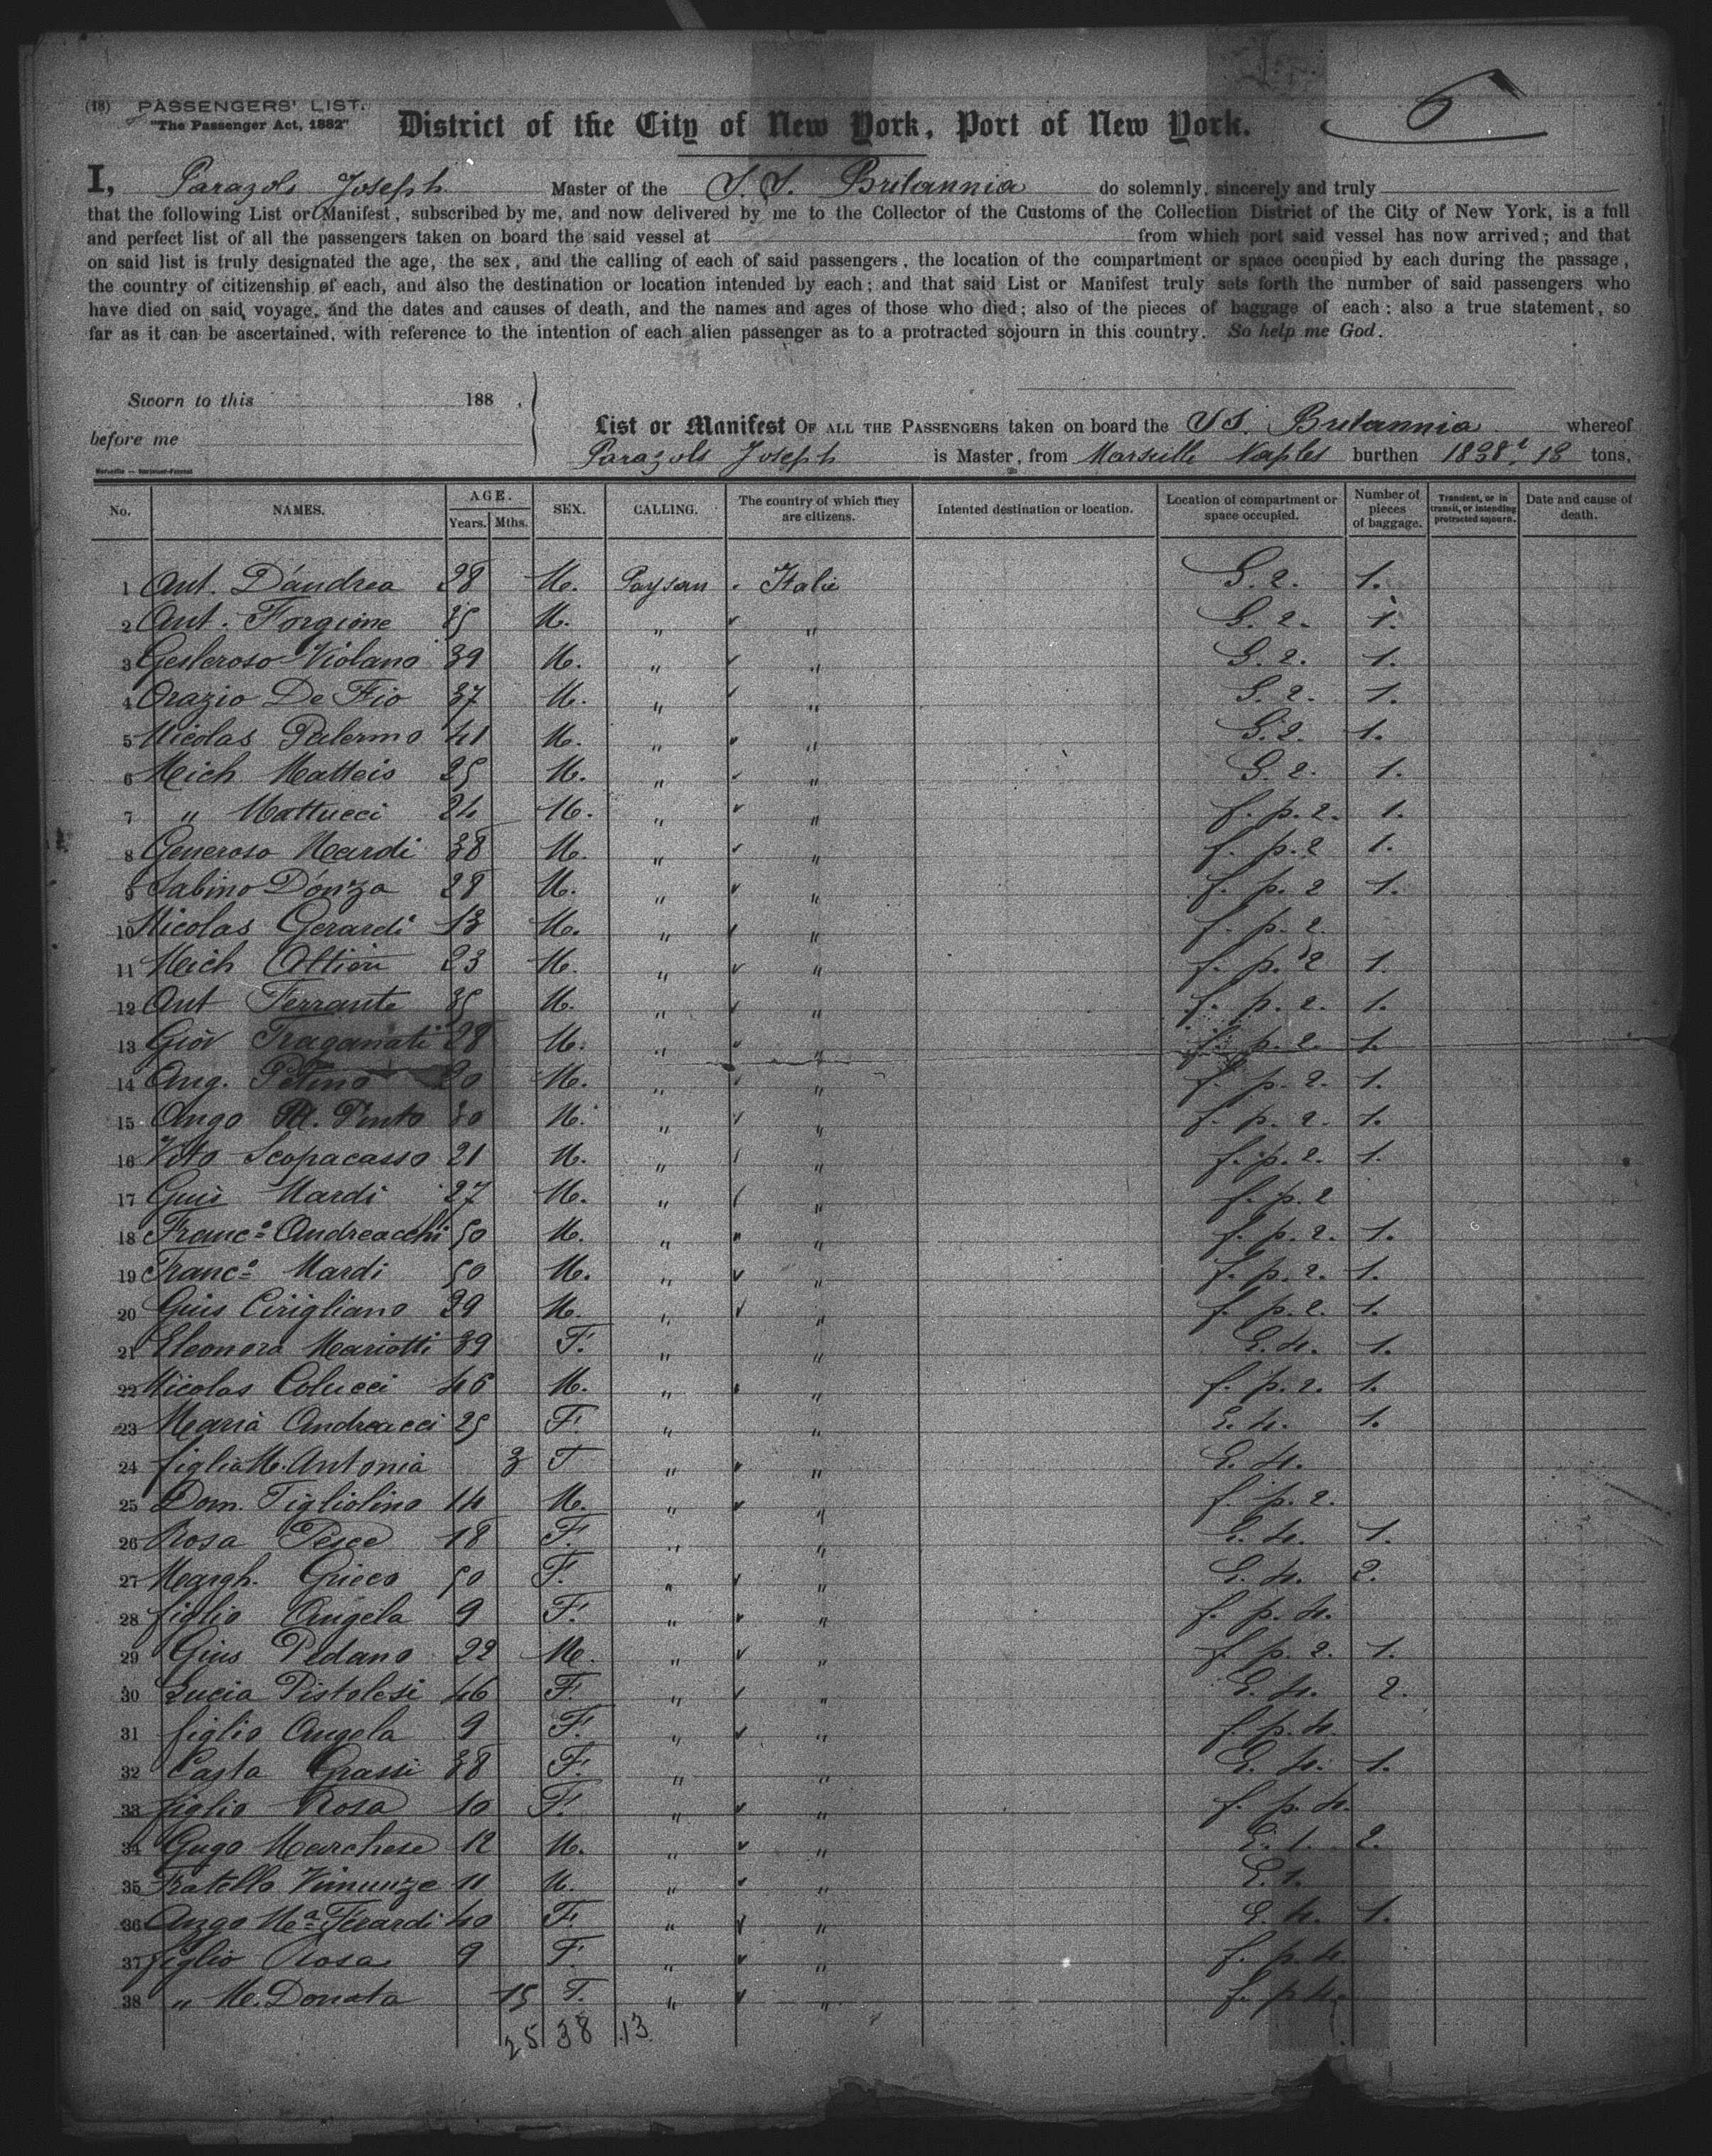 (18) PASSENGERS' LIST.
"The Passenger Act, 1882"
District of the City of New York, Port of New York.
6
I, Parazols Joseph Master of the S. S. Britannia do solemnly, sincerely and truly
that the following List or Manifest, subscribed by me, and now delivered by me to the Collector of the Customs of the Collection District of the City of New York, is a full
and perfect list of all the passengers taken on board the said vessel at from which port said vessel has now arrived; and that
on said list is truly designated the age, the sex, and the calling of each of said passengers, the location of the compartment or space occupied by each during the passage,
the country of citizenship of each, and also the destination or location intended by each; and that said List or Manifest truly sets forth the number of said passengers who
have died on said voyage, and the dates and causes of death, and the names and ages of those who died; also of the pieces of baggage of each; also a true statement, so
far as it can be ascertained, with reference to the intention of each alien passenger as to a protracted sojourn in this country. So help me God.
Sworn to this 188 .
before me
List or Manifest OF ALL THE PASSENGERS taken on board the S S. Britannia whereof
Parazols Joseph is Master, from Marseille Naples burthen 1838t, 13 tons.
No. NAMES. AGE. Years. Mths. SEX. CALLING. The country of which they are citizens. Intended destination or location. Location of compartment or space occupied. Number of pieces of baggage. Transient, or in transit, or intending protracted sojourn. Date and cause of death.
1 Ant. D'andrea 28 M. Paysan Italie G. 2. 1.
2 Ant. Forgione 35 M. " " G. 2. 1.
3 Gesleroso Violano 39 M. " " G. 2. 1.
4 Orazio De Fio 37 M. " " G. 2. 1.
5 Nicolas Palermo 41 M. " " G. 2. 1.
6 Mich Matteis 25 M. " " G. 2. 1.
7 " Mattucci 24 M. " " f. p. 2. 1.
8 Generoso Nardi 38 M. " " f. p. 2 1.
9 Sabino D'onza 28 M. " " f. p. 2 1.
10 Nicolas Gerardi 13 M. " " f. p. 2.
11 Mich Altieri 23 M. " " f. p. 2 1.
12 Ant Ferrante 35 M. " " f. p. 2. 1.
13 Giov Traganati 28 M. " " f. p. 2. 1.
14 Ang. Petino 20 M. " " f. p. 2. 1.
15 Ango M. Pinto 30 M. " " f. p. 2. 1.
16 Vito Scopacasso 21 M. " " f. p. 2. 1.
17 Guis Nardi 27 M. " " f. p. 2
18 Franc° Andreacchi 50 M. " " f. p. 2. 1.
19 Franc° Nardi 50 M. " " f. p. 2. 1.
20 Guis Cirigliano 29 M. " " f. p. 2. 1.
21 Eleonora Mariotti 39 F. " " E. 4. 1.
22 Nicolas Colucci 46 M. " " f. p. 2. 1.
23 Maria Andreacci 25 F. " " E. 4. 1.
24 figlia M. Antonia 3 F " " E. 4.
25 Dom. Figliolino 14 M. " " f. p. 2.
26 Rosa Pesce 18 F. " " E. 4. 1.
27 Margh. Grieco 50 F. " " E. 4. 2.
28 figlio Angela 9 F. " " f. p. 4.
29 Gius Pedano 22 M. " " f. p. 2. 1.
30 Lucia Pistolesi 46 F. " " E. 4. 2.
31 figlio Angela 9 F. " " f. p. 4.
32 Casta Grassi 38 F. " " E. 4. 1.
33 figlio Rosa 10 F. " " f. p. 4.
34 Gugo Marchese 12 M. " " E. 1. 2.
35 Fratello Vinunze 11 M. " " E. 1.
36 Ango Mª Ferardi 40 F. " " E. 4. 1.
37 figlio Rosa 9 F. " " f. p. 4.
38 " M. Donata 15 F. " " f. p 4.
25 38 13